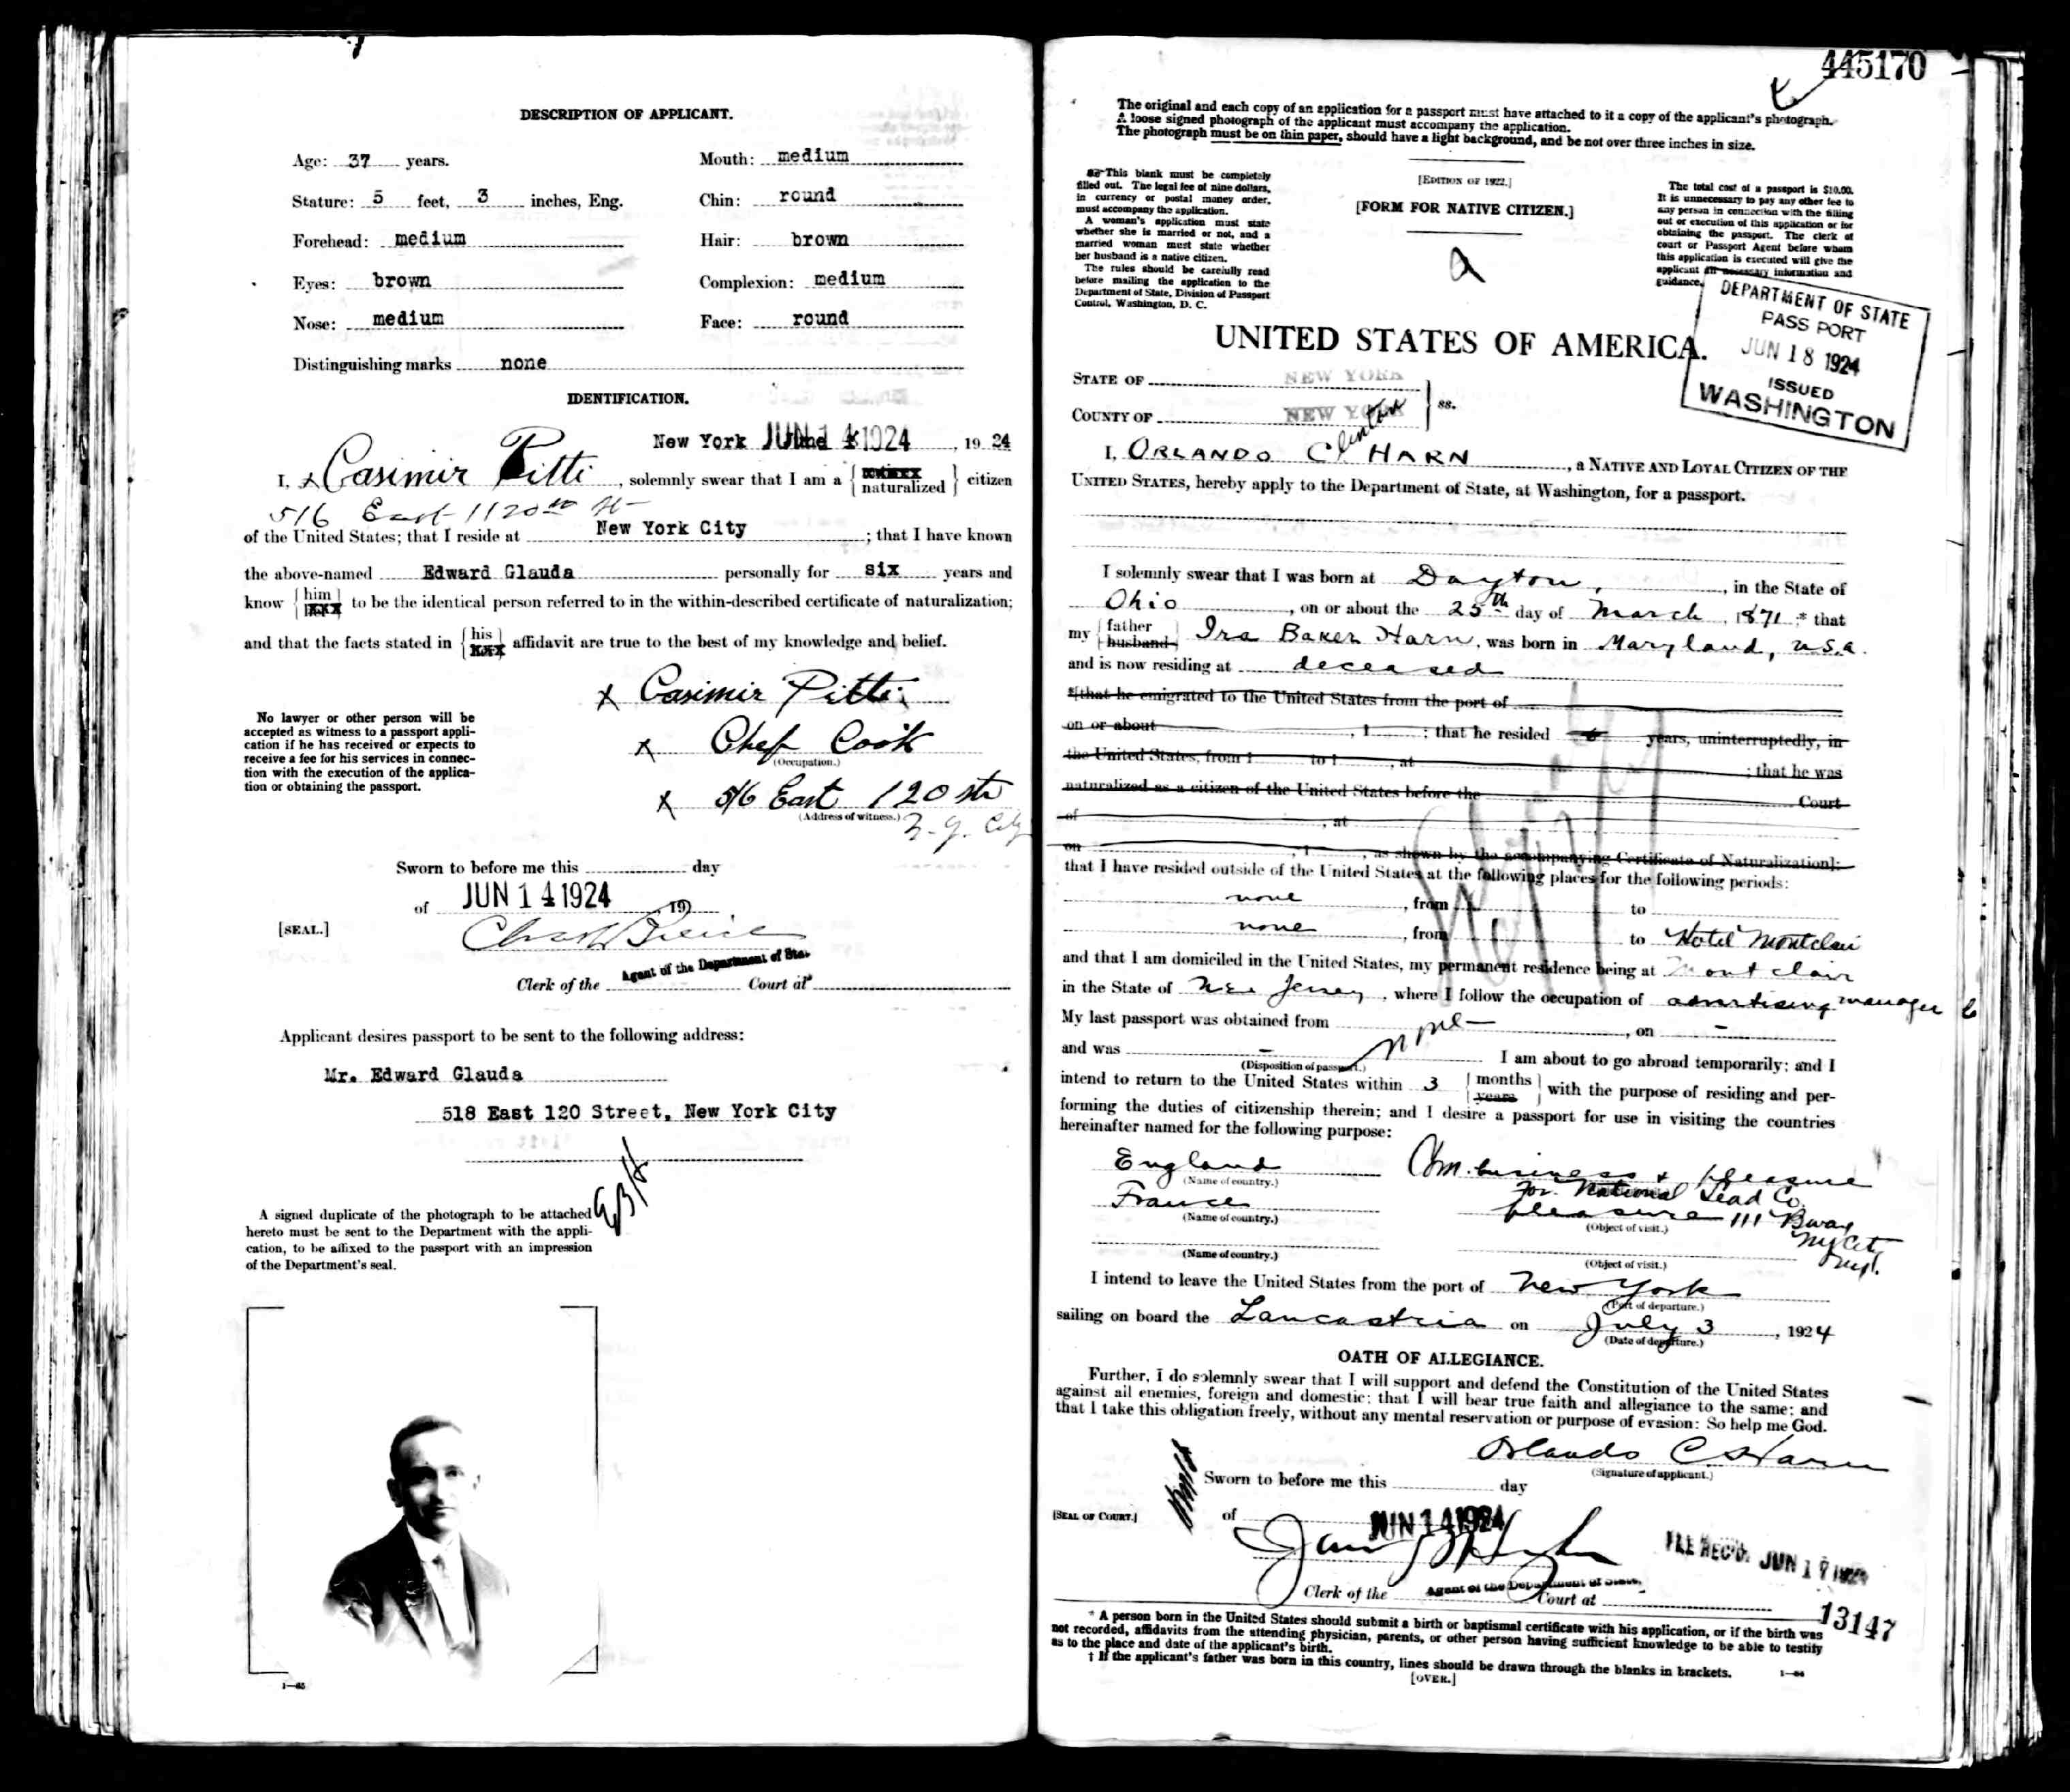 DESCRIPTION OF APPLICANT.
Age: 37 years.
Mouth: medium
Stature: 5 feet, 3 inches, Eng.
Chin: round
Forehead: medium
Hair: brown
Eyes: brown
Complexion: medium
Nose: medium
Face: round
Distinguishing marks none
IDENTIFICATION.
New York JUN 14 1924, 19 24
I, x Casimir Pitti, solemnly swear that I am a naturalized citizen
516 East 1120th St
of the United States; that I reside at New York City; that I have known
the above-named Edward Glauda personally for six years and
know him to be the identical person referred to in the within-described certificate of naturalization;
and that the facts stated in his affidavit are true to the best of my knowledge and belief.
x Casimir Pitti
No lawyer or other person will be
accepted as witness to a passport appli-
cation if he has received or expects to
receive a fee for his services in connec-
tion with the execution of the applica-
tion or obtaining the passport.
x Chef Cook
(Occupation.)
x 516 East 120 str
(Address of witness.) N.Y. City
Sworn to before me this day
of JUN 14 1924, 19
[SEAL.]
Clerk of the Agent of the Department of Sta. Court at
Applicant desires passport to be sent to the following address:
Mr. Edward Glauda
518 East 120 Street, New York City
A signed duplicate of the photograph to be attached
hereto must be sent to the Department with the appli-
cation, to be affixed to the passport with an impression
of the Department's seal.
1—65
445170
The original and each copy of an application for a passport must have attached to it a copy of the applicant's photograph.
A loose signed photograph of the applicant must accompany the application.
The photograph must be on thin paper, should have a light background, and be not over three inches in size.
This blank must be completely
filled out. The legal fee of nine dollars,
in currency or postal money order,
must accompany the application.
A woman's application must state
whether she is married or not, and a
married woman must state whether
her husband is a native citizen.
The rules should be carefully read
before mailing the application to the
Department of State, Division of Passport
Control, Washington, D. C.
[EDITION OF 1922.]
[FORM FOR NATIVE CITIZEN.]
a
The total cost of a passport is $10.00.
It is unnecessary to pay any other fee to
any person in connection with the filling
out or execution of this application or for
obtaining the passport. The clerk of
court or Passport Agent before whom
this application is executed will give the
applicant all necessary information and
guidance.
DEPARTMENT OF STATE
PASS PORT
JUN 18 1924
ISSUED
WASHINGTON
UNITED STATES OF AMERICA.
STATE OF NEW YORK
COUNTY OF NEW YORK
ss.
Clinton
I, ORLANDO C. HARN, a NATIVE AND LOYAL CITIZEN OF THE
UNITED STATES, hereby apply to the Department of State, at Washington, for a passport.
I solemnly swear that I was born at Dayton, in the State of
Ohio, on or about the 25th day of March, 1871;* that
my father husband Ira Baker Harn, was born in Maryland, U.S.A.
and is now residing at deceased
†[that he emigrated to the United States from the port of
on or about , 1 ; that he resided years, uninterruptedly, in
the United States, from 1 to 1 , at ; that he was
naturalized as a citizen of the United States before the Court
of , at
on , 1 , as shown by the accompanying Certificate of Naturalization];
that I have resided outside of the United States at the following places for the following periods:
none, from to
none, from to Hotel Montclair
and that I am domiciled in the United States, my permanent residence being at Montclair
in the State of New Jersey, where I follow the occupation of advertising manager
My last passport was obtained from , on –
and was –
(Disposition of passport.) I am about to go abroad temporarily; and I
intend to return to the United States within 3 months years with the purpose of residing and per-
forming the duties of citizenship therein; and I desire a passport for use in visiting the countries
hereinafter named for the following purpose:
England Com. business & pleasure
(Name of country.) for National Lead Co.
France pleasure 111 Bway
(Name of country.) (Object of visit.) NY City
(Name of country.) (Object of visit.)
I intend to leave the United States from the port of New York
(Port of departure.)
sailing on board the Lancastria on July 3, 1924
(Date of departure.)
OATH OF ALLEGIANCE.
Further, I do solemnly swear that I will support and defend the Constitution of the United States
against all enemies, foreign and domestic; that I will bear true faith and allegiance to the same; and
that I take this obligation freely, without any mental reservation or purpose of evasion: So help me God.
Orlando C. Harn
(Signature of applicant.)
Sworn to before me this day
[SEAL OF COURT.]
of JUN 14 1924
FEE REC'D. JUN 17 1924
Clerk of the Agent of the Department of State, Court at
13147
* A person born in the United States should submit a birth or baptismal certificate with his application, or if the birth was
not recorded, affidavits from the attending physician, parents, or other person having sufficient knowledge to be able to testify
as to the place and date of the applicant's birth.
† If the applicant's father was born in this country, lines should be drawn through the blanks in brackets.
[OVER.]